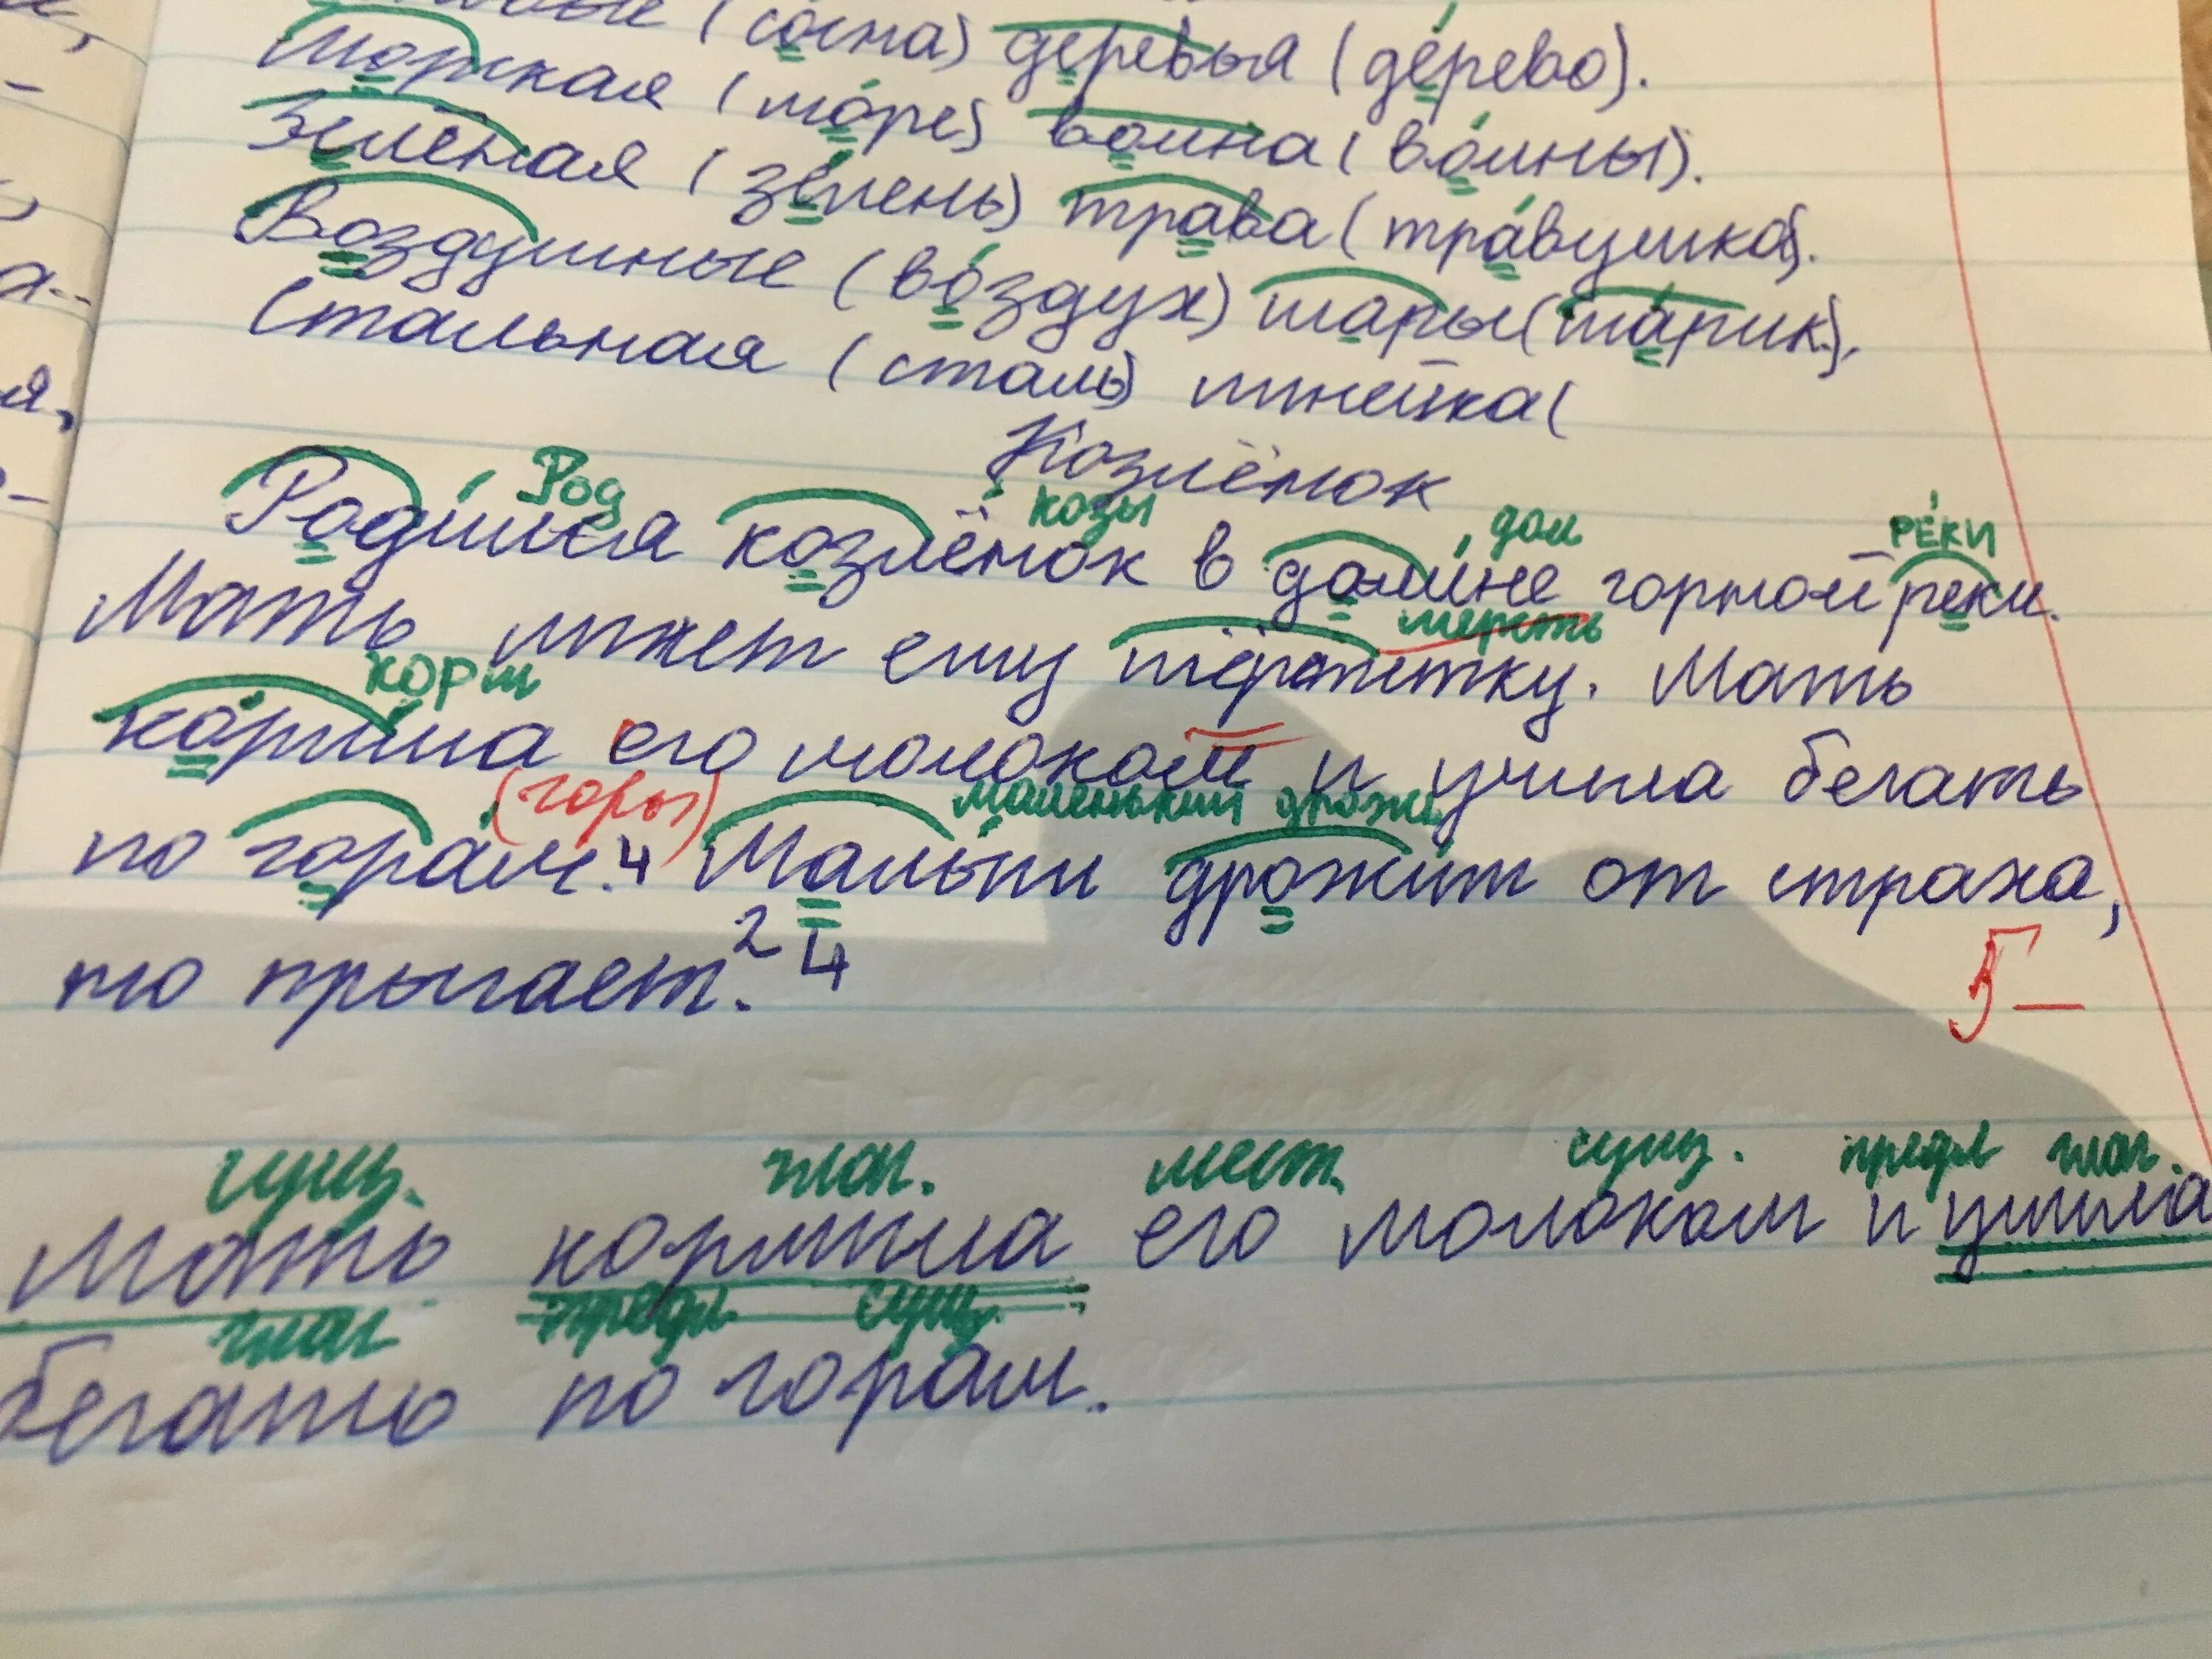 (сосна) деревья (дерево).
Морская (море) война (войны).
Зелёная (зелень) трава (травушка).
Воздушные (воздух) шары (шарик).
Стальная (сталь) линейка (
Козлёнок
Род козы дол РЕКИ
Родился козлёнок в долине горной реки.
шерсть
Мать лижет ему шёрстку. Мать
корм
кормила его молоком и учила бегать
(горы) маленький дрожь
по горам.4 Малыш дрожит от страха,
но прыгает.² 4
5-
сущ. глаг. мест. сущ. предл глаг.
Мать кормила его молоком и учила
глаг предл сущ.
бегать по горам.